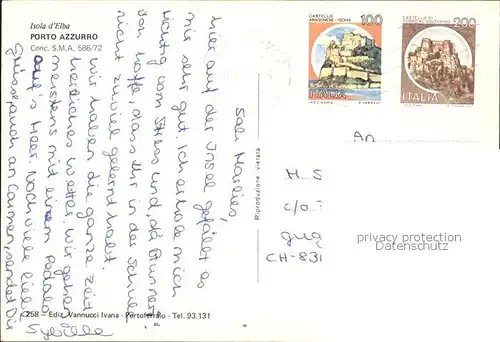 Isola d'Elba
PORTO AZZURRO
Conc. S.M.A. 586/72
Sali Marlies,
hier auf der Insel gefällt es
mir sehr gut. Ich erhole mich
richtig vom Stress und
von hoffe, dass Ihr in der Schule
nicht zuviel gelernt habt.
Wir haben die ganze Zeit
herrliches Wetter. Wir gehen
meistens mit einem Pedalo
auf's Meer. Noch viele liebe
Grüsse, auch an Carmen, sendet Dir
Sybille
Riproduzione vietata
258 - Ediz. Vannucci Ivana - Portoferraio - Tel. 93.131
CASTELLO
ARAGONESE - ISCHIA
100
ITALIA
200
ITALIA
An
M S
c/o
gug
CH-831
privacy protection
Datenschutz